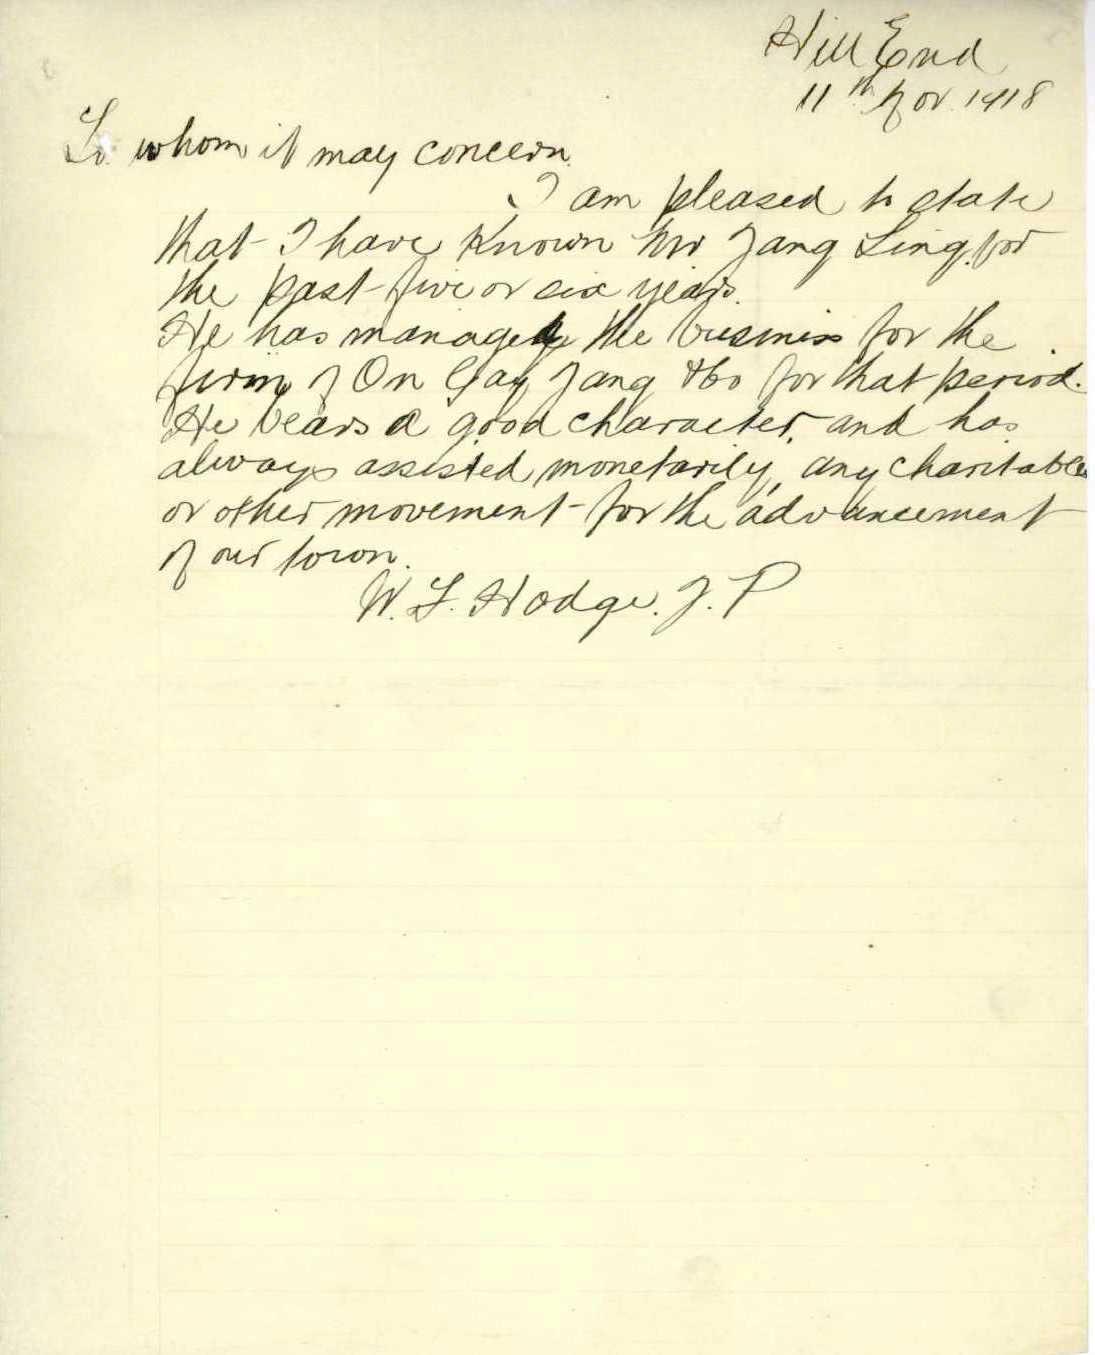 Hill End
11th Nov. 1918
To whom it may concern.
I am pleased to state
that I have known Mr Jang Ling for
the past five or six years.
He has managed the business for the
firm of On Gay Jang & Co for that period.
He bears a good character, and has
always assisted monetarily, any charitable
or other movement for the advancement
of our town.
W. L. Hodge. J. P